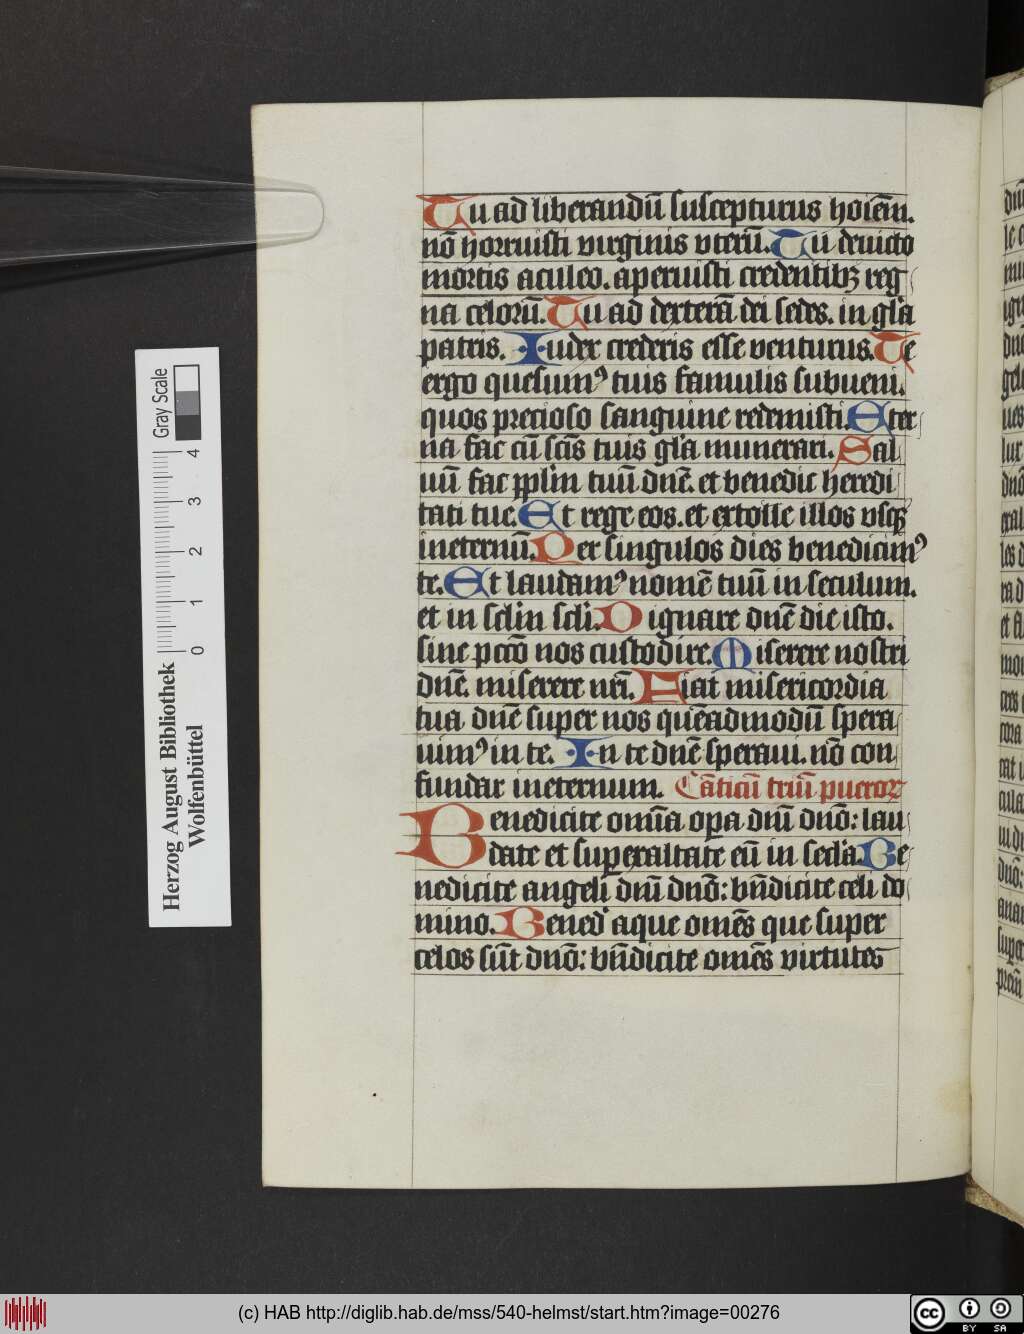 Tu ad liberandū suscepturus hoiēm.
nō horruisti virginis vterū. Tu deuicto
mortis aculeo. aperuisti credentibꝫ reg
na celorū. Tu ad dexterā dei sedes. in gl̄a
patris. Iudex crederis esse venturus. Te
ergo quesumꝰ tuis famulis subueni.
quos precioso sanguine redemisti. Eter
na fac cū scīs tuis gl̄a munerari. Sal
uū fac pp̄lm tuū dn̄e. et benedic heredi
tati tue. Et rege eos. et extolle illos vsqꝫ
ineternū. Per singulos dies benedicimꝰ
te. Et laudamꝰ nomē tuū in seculum.
et in sclm scli. Dignare dn̄e die isto.
sine pccō nos custodire. Miserere nostri
dn̄e. miserere nr̄i. Fiat misericordia
tua dn̄e super nos quēadmodū spera
uimꝰ in te. In te dn̄e speraui. nō con
fundar ineternum. Cāticū triū pueroꝝ
Benedicite om̄ia oꝑa dn̄i dn̄o: lau
date et suꝑexaltate eū in secl̄a. Be
nedicite angeli dn̄i dn̄o: bn̄dicite celi do
mino. Bened aque om̄es que super
celos sūt dn̄o: bn̄dicite om̄es virtutes
Herzog August Bibliothek
Wolfenbüttel
Gray Scale
0 1 2 3 4
(c) HAB http://diglib.hab.de/mss/540-helmst/start.htm?image=00276
cc BY SA